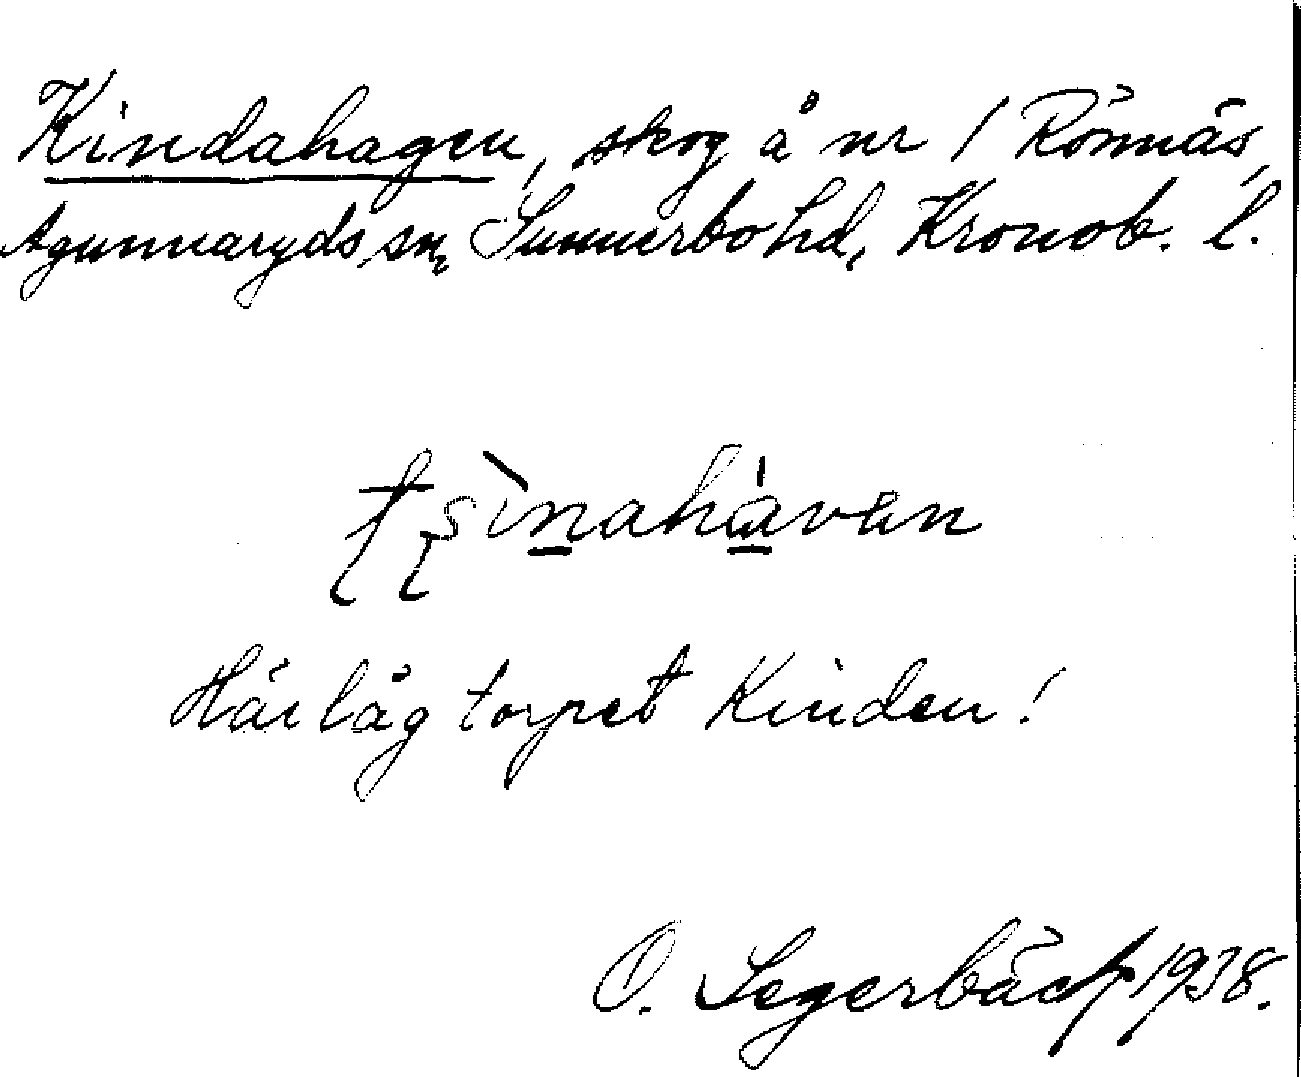 Kindahagen, skog å nr 1 Rönnäs,
Agunnaryds sn, Sunnerbo hd, Kronob. l.
Här låg torpet Kinden!
O. Segerbäck 1938.